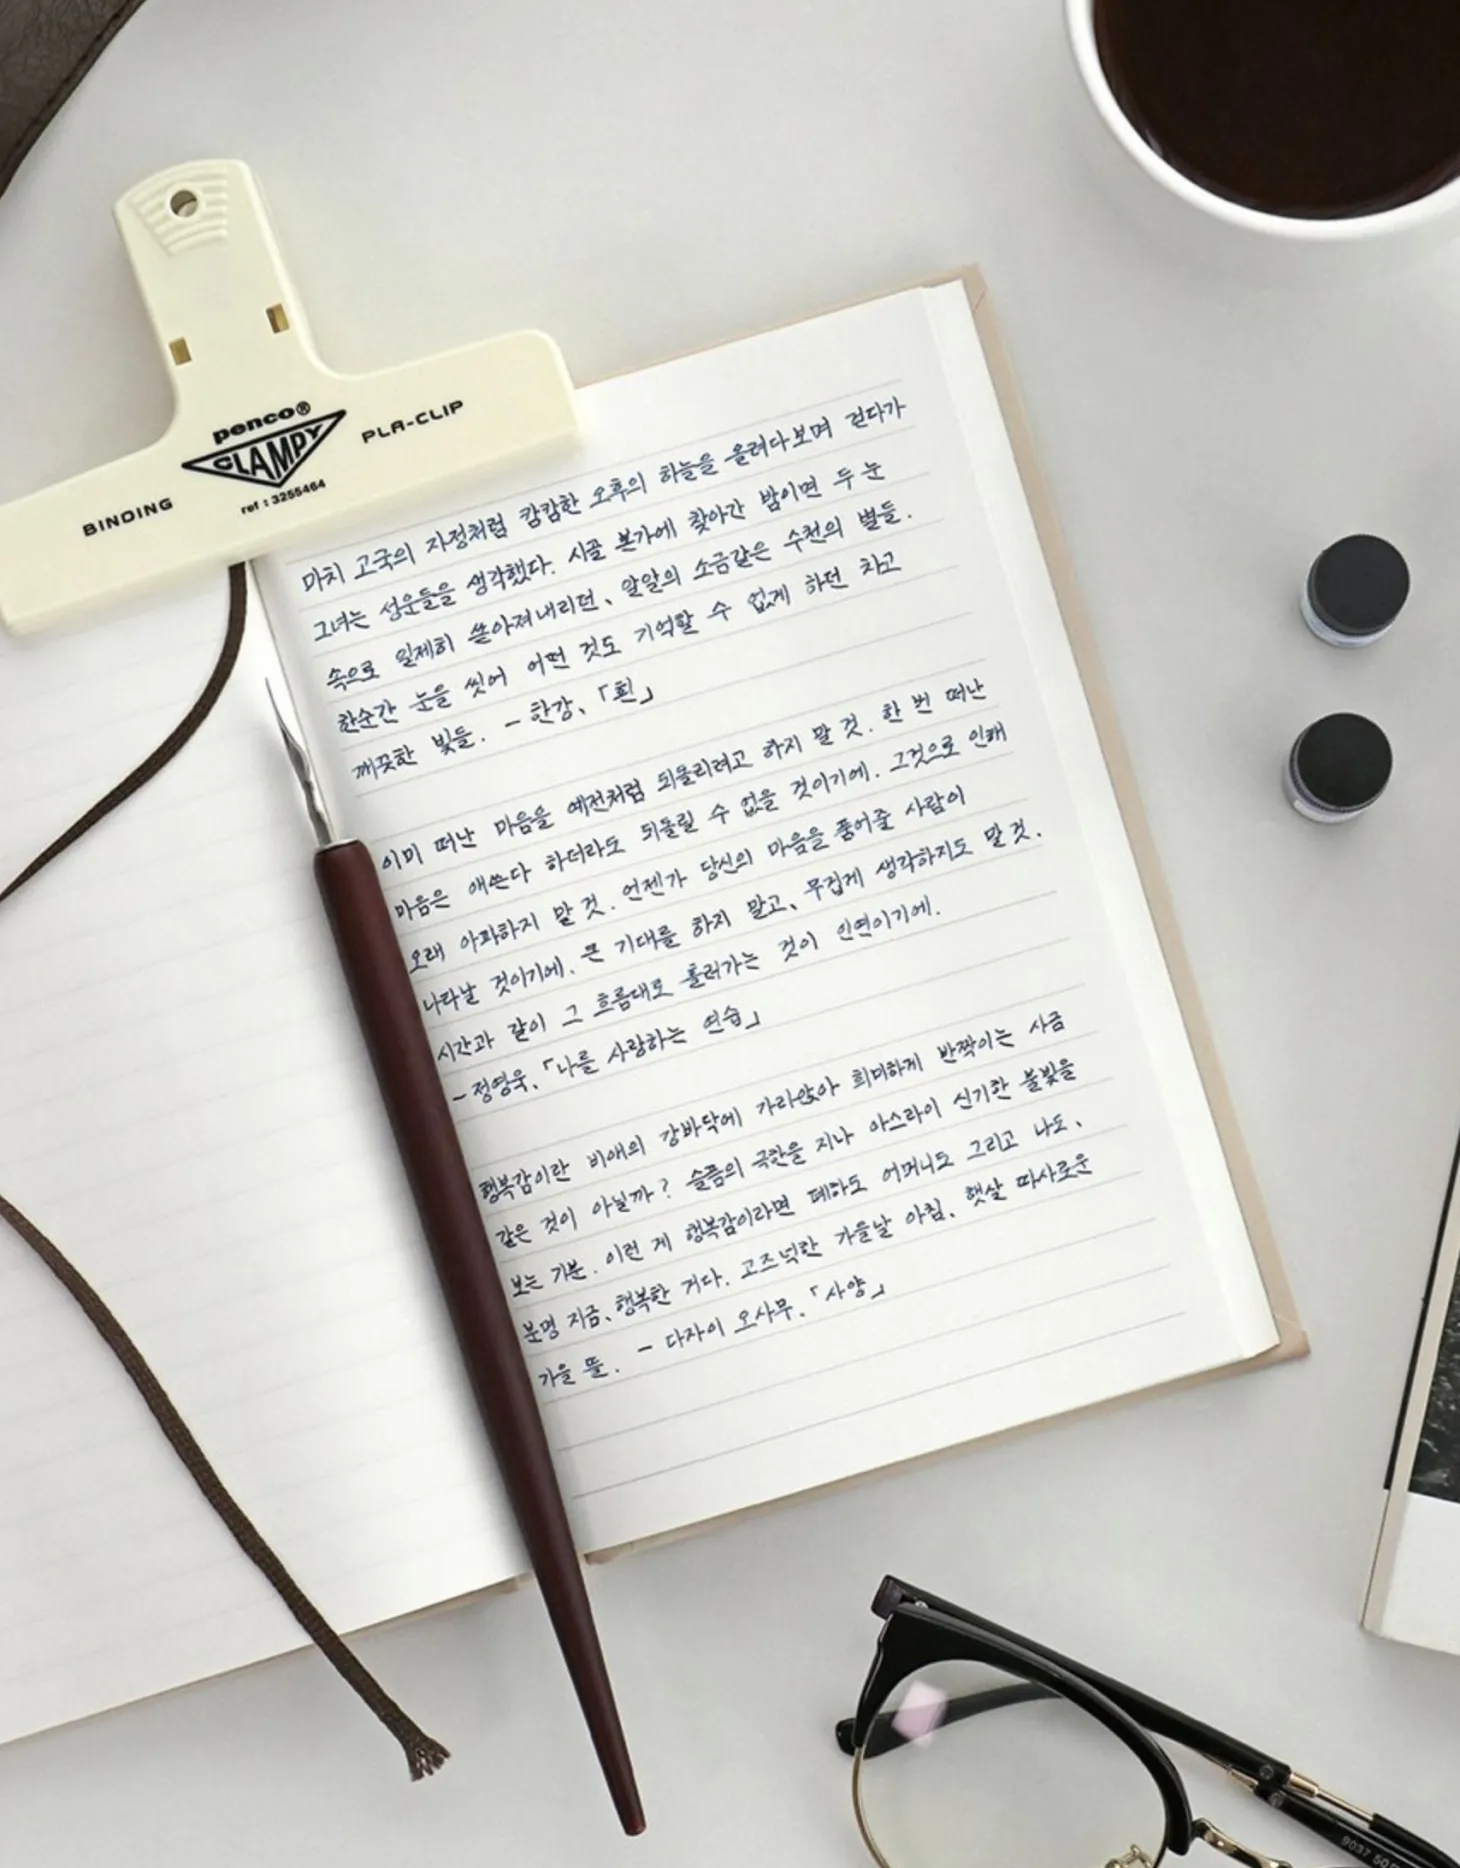 penco®
CLAMPY
PLA-CLIP
BINDING
ref : 3255464
마치 고국의 자정처럼 캄캄한 오후의 하늘을 올려다보며 걷다가
그녀는 성운들을 생각했다. 시골 본가에 찾아간 밤이면 두 눈
속으로 일제히 쏟아져내리던, 알알의 소금같은 수천의 별들.
한순간 눈을 씻어 어떤 것도 기억할 수 없게 하던 차고
깨끗한 빛들. - 한강, 「흰」
이미 떠난 마음을 예전처럼 되돌리려고 하지 말 것. 한 번 떠난
마음은 애쓴다 하더라도 되돌릴 수 없을 것이기에. 그것으로 인해
오래 아파하지 말 것. 언젠가 당신의 마음을 품어줄 사람이
나타날 것이기에. 큰 기대를 하지 말고, 무겁게 생각하지도 말 것.
시간과 같이 그 흐름대로 흘러가는 것이 인연이기에.
- 정영욱, 「나를 사랑하는 연습」
행복감이란 비애의 강바닥에 가라앉아 희미하게 반짝이는 사금
같은 것이 아닐까? 슬픔의 극한을 지나 아스라이 신기한 불빛을
보는 기분. 이런 게 행복감이라면 폐하도 어머니도 그리고 나도,
분명 지금, 행복한 거다. 고즈넉한 가을날 아침. 햇살 따사로운
가을 뜰. - 다자이 오사무. 「사양」